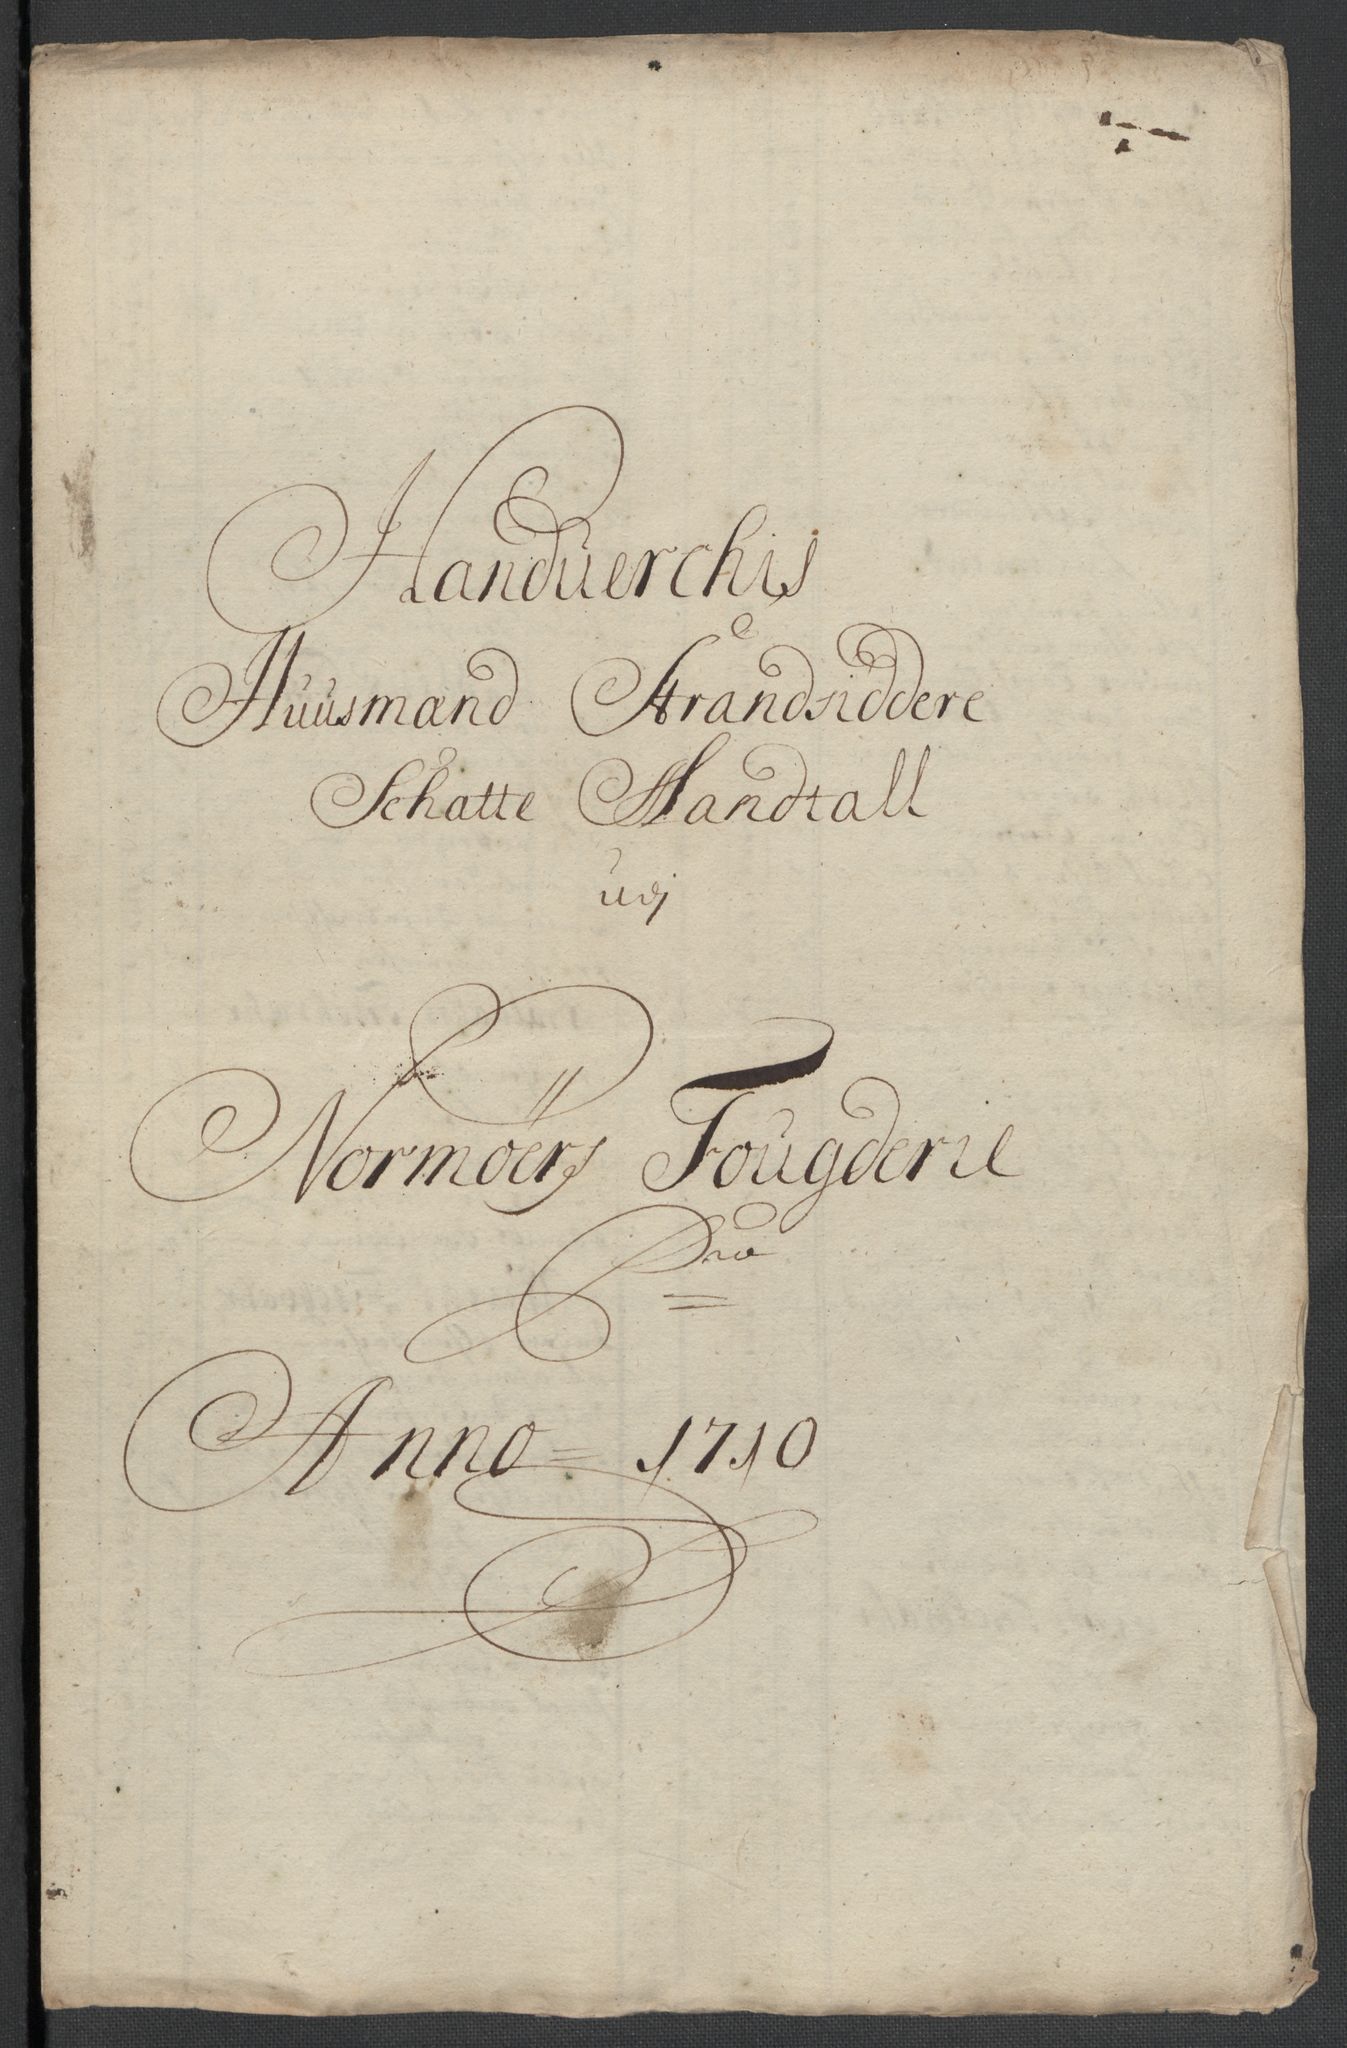 Handuerchis
Huusmænd Strandsiddere
Schatte Mandtall
udj
Normöers Fougderie
Pro
Anno = 1710